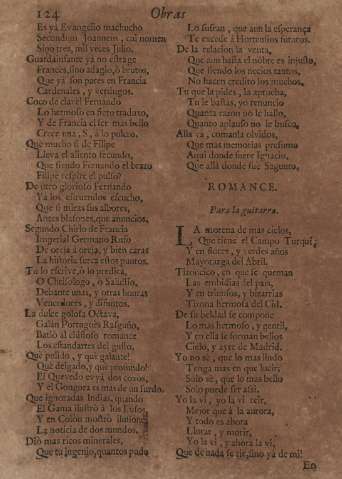 124 Obras
Es yà Evangelio machucho
Secundum Joannem, cai nomen
Sino tres, mil veces Julio.
Guardainfante yà no estrage
Frances, sino adagio, ò brutos,
Que yà son pares en Francia
Cardenales, y verdugos.
Coco de clavèl Fernando
Lo hermoso en fiero traduxo,
Y de Francia el ser mas bello
Crece una, S, à lo pulcro.
Que mucho si de Filipe
Lleva el aliento fecundo,
Que siendo Fernando el brazo
Filipe respire el pulso?
De otro glorioso Fernando
Ya los clarines escucho,
Que si miras sus albores,
Antes blasones, que anuncios.
Segundo Chirlo de Francia
Imperial Germano Rufo
De oreja à oreja, y bien caras
La historia serca estos puntos.
Tu lo escrive, ò lo predica,
O Chrisologo, ò Salustio,
Debante unas, y otras honras
Vencedores, y difuntos.
La dulce golosa Octava,
Galàn Portuguès Rasguño,
Batiò al clasico romance
Los estandartes del gusto.
Què pulido, y què galante!
Què delgado, y què profundo!
El Quevedo es yà dos coros,
Y el Gongora es mas de un surdo.
Que ignoradas Indias, quando
El Gama ilustrò à los Lusos
Y en Colon mostrò ilusiones
La noticia de dos mundos.
Diò mas ricos minerales,
Que tu Ingenio, quantos pudo
Lo sufran, que aun la esperança
Te excede à Hortensios futuros.
De la relacion la venta,
Que aun hasta el nombre es injusto,
Que siendo los necios tantos,
No hacen credito los muchos.
Tu que la pides, la aprucha,
Tu le bastas, yo renuncio
Quanta razon no le hallo,
Quanto aplauso no le busco.
Allà va, comanla olvidos,
Que mas memorias presumo
Aqui donde fuere Ignacio,
Que allà donde fue Sagunto.
ROMANCE.
Para la guitarra.
LA morena de mas ciclos,
Que tiene el Campo Turquí,
Y en flores, y verdes años
Mayorazga del Abril.
Tizoncico, en que se queman
Las embidias del país,
Y en triunfos, y bizarrias
Tizona hermosa del Cid.
De su beldad se compone
Lo mas hermoso, y gentil,
Y en ella se forman bellos
Cielo, y ayre de Madrid.
Yo no sè, que lo mas lindo
Tenga mas en que lucir;
Solo sè, que lo mas bello
Solo puede ser assi.
Yo la vi, yo la vi reir,
Mejor que à la aurora,
Y todo es ahora
Llorar, y morir,
Yo la vi, y ahora la vi,
Que de nada se rie, sino yà de mi!
En